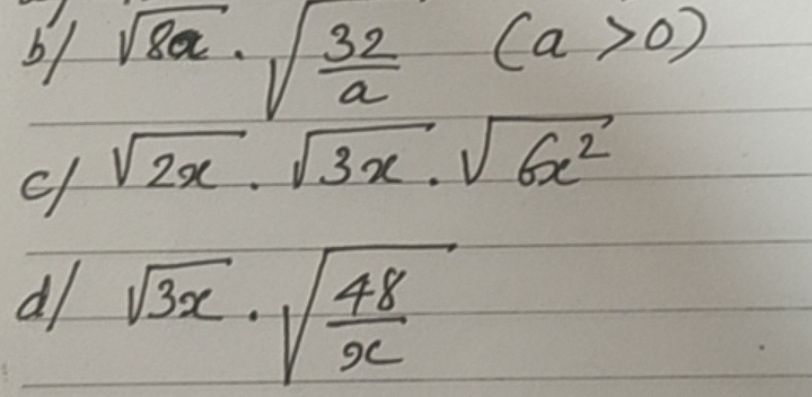 b/ √8a . √(32/a) (a > 0)
c/ √2x . √3x . √6x²
d/ √3x . √(48/x)